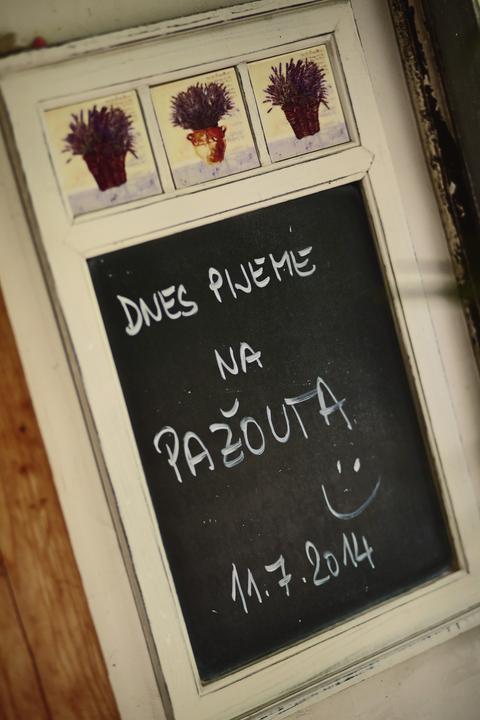 DNES PIJEME
NA
PAŽOUTA
11.7.2014